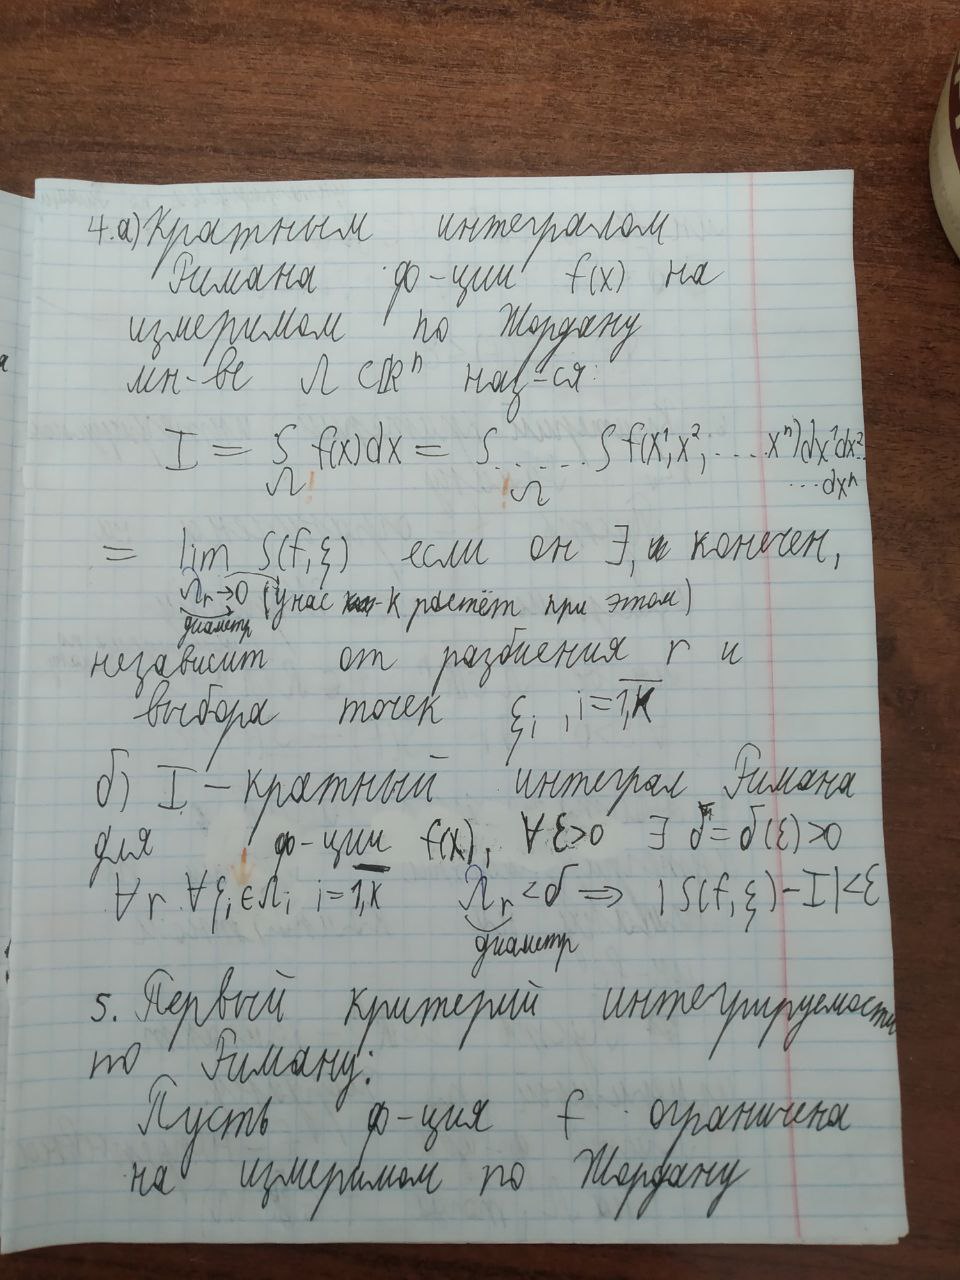 4.а) Кратным интегралом
Римана ф-ции f(x) на
измеримом по Жордану
мн-ве Λ ⊂ ℝⁿ наз-ся:
I = ∫ f(x)dx = ∫.....∫ f(x¹,x²,....xⁿ)dx¹dx²..
Λ Λ ...dxⁿ
= lim S(f,ξ) если он ∃, и конечен,
Λᵣ→0 (у нас к растёт при этом)
диаметр
независит от разбиения r и
выбора точек ξᵢ, i=1,к
б) I – кратный интеграл Римана
для ф-ции f(x), ∀ε>0 ∃ δ=δ(ε)>0
∀r ∀ξᵢ∈Λᵢ i=1,к Λᵣ<δ ⇒ |S(f,ξ)-I|<ε
диаметр
5. Первый критерий интегрируемости
по Риману:
Пусть ф-ция f ограничена
на измеримом по Жордану